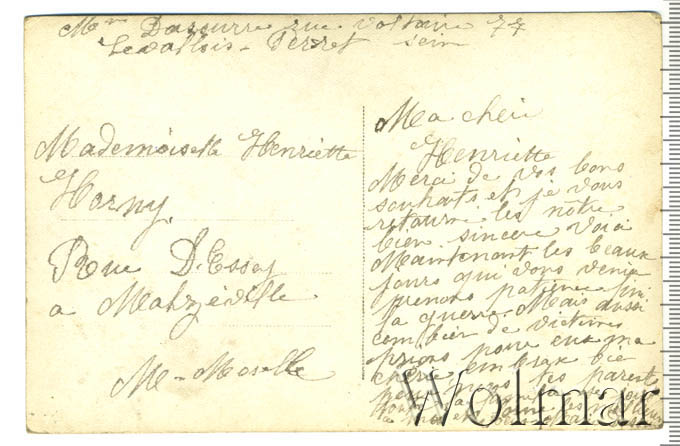 Mme Dasurre rue voltaire 77
Levallois-Perret sein
Mademoiselle Henriette
Horny
Rue D.Essey
a Malzéville
M-Moselle
Ma cheri
Henriette
Merci de vos bons
souhaits et je vous
retourne les nôtre
bien sincere Voici
Maintenant les beaux
jours qui vons venir
prenons patience
la guerre. Mais aussi
combien de victimes
prions pour eux ma
cherie embrasse bie
tes parent
Wolmar